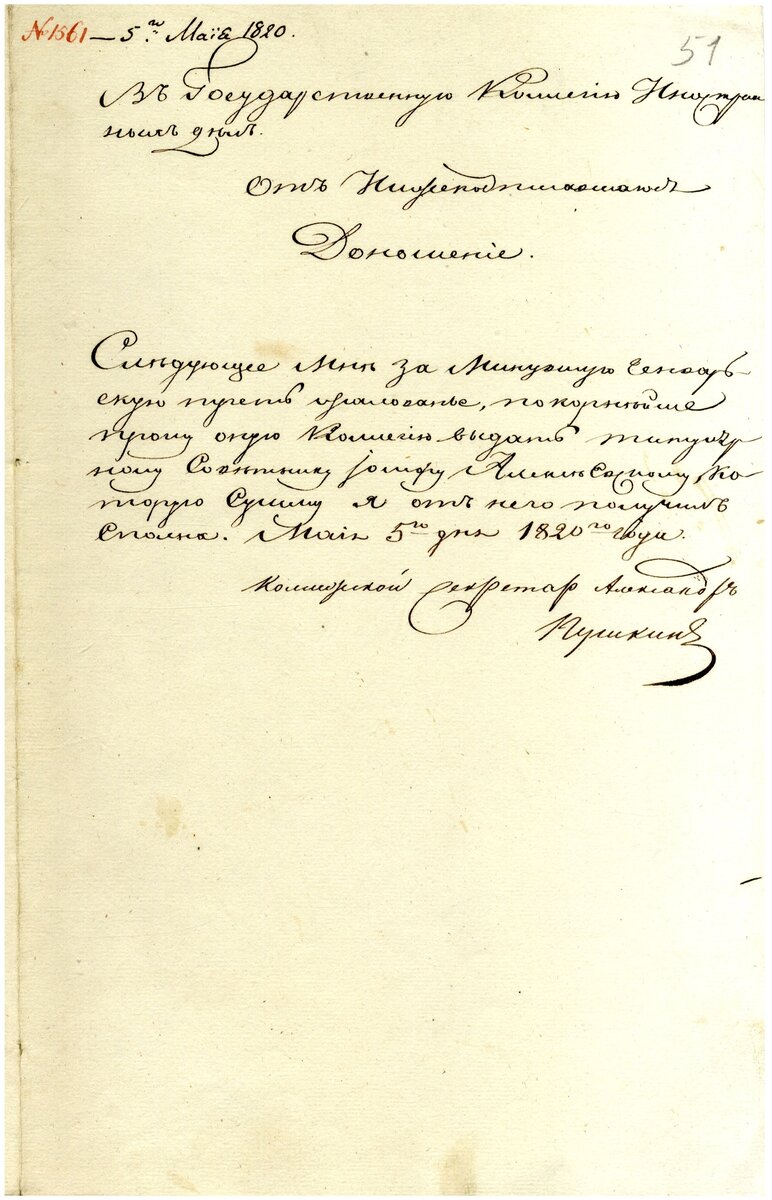 № 1561 — 5го Маія 1820.
51
Въ Государственную Коллегію Иностран
ныхъ дѣлъ.
отъ Нижеподписавшагося
Доношеніе.
Слѣдующее Мнѣ за Минувшую Генварь-
скую треть жалованье, покорнѣйше
прошу оную Коллегію выдать титуляр
ному Совѣтнику Іосифу Ко-
торую Сумму я отъ него получилъ
Сполна. Маія 5го дня 1820го года.
Коллежской Секретарь Александръ
Пушкинъ